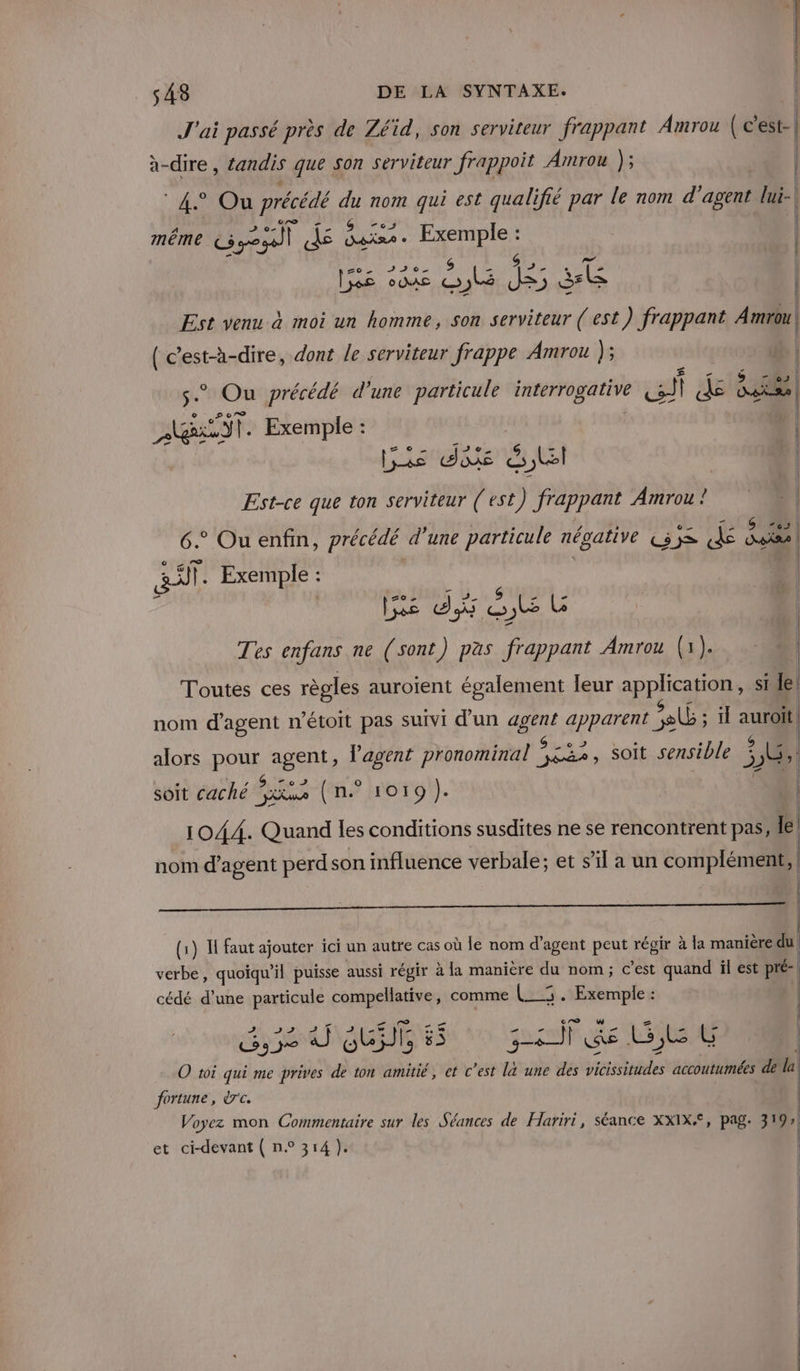 548 DE LA SYNTAXE.
J'ai passé près de Zéïd, son serviteur frappant Amrou ( c'est-
à-dire, tandis que son serviteur frappoit Amrou );
4.° Ou précédé du nom qui est qualifié par le nom d'agent lui-
même مُعْتَمِدٌ عَلَى ٱلْمَوْصُوفِ. Exemple :
رَجُلٌ ضَارِبٌ عَبْدُهُ عَمْرًا
Est venu à moi un homme, son serviteur ( est ) frappant Amrou
( c'est-à-dire, dont le serviteur frappe Amrou );
5.° Ou précédé d'une particule interrogative مُعْتَمِدٌ عَلَى
ٱلْٱسْتِفْهَامِ. Exemple :
عَمْرًا
Est-ce que ton serviteur ( est ) frappant Amrou !
6.° Ou enfin, précédé d'une particule négative مُعْتَمِدٌ عَلَى حَرْفِ
ٱلنَّفْىِ. Exemple :
مَا ضَارِبٌ بَنُوكَ عَمْرًا
Tes enfans ne ( sont ) pas frappant Amrou (1).
Toutes ces règles auroient également leur application, si le
nom d'agent n'étoit pas suivi d'un agent apparent ظَاهِرٌ ; il auroit
alors pour agent, l'agent pronominal مُضْمَرٌ, soit sensible بَارِزٌ,
soit caché مُسْتَتِرٌ ( n.° 1019 ).
1044. Quand les conditions susdites ne se rencontrent pas, le
nom d'agent perd son influence verbale; et s'il a un complément,
(1) Il faut ajouter ici un autre cas où le nom d'agent peut régir à la manière du
verbe, quoiqu'il puisse aussi régir à la manière du nom ; c'est quand il est pré-
cédé d'une particule compellative, comme يَا. Exemple :
يَا صَارِفًا عَنِّى ٱلْمَوَدَّةَ وَٱلزَّمَانُ لَهُ صُرُوفْ
O toi qui me prives de ton amitié, et c'est là une des vicissitudes accoutumées de la
fortune, &c.
Voyez mon Commentaire sur les Séances de Hariri, séance XXIX.e, pag. 319,
et ci-devant ( n.° 314 ).